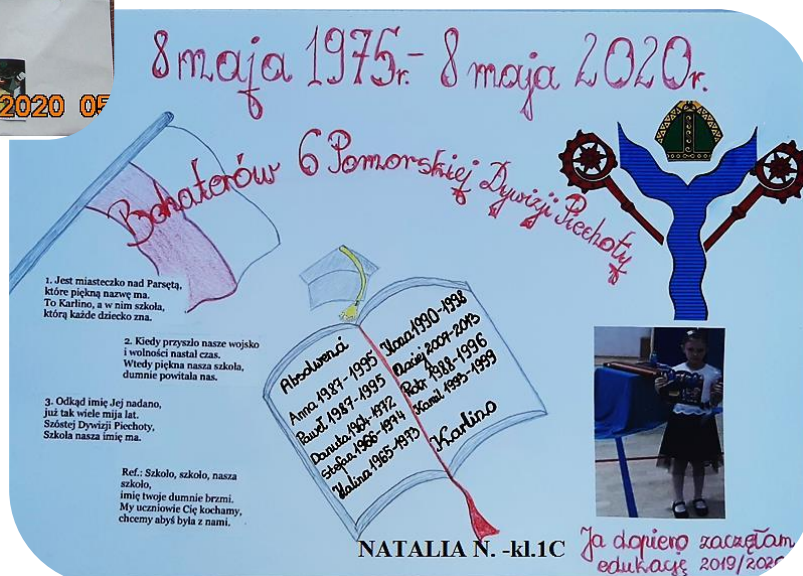 2020 05
8 maja 1975r. - 8 maja 2020r.
Bohaterów 6 Pomorskiej Dywizji Piechoty
1. Jest miasteczko nad Parsętą,
które piękną nazwę ma.
To Karlino, a w nim szkoła,
którą każde dziecko zna.
2. Kiedy przyszło nasze wojsko
i wolności nastał czas.
Wtedy piękna nasza szkoła,
dumnie powitała nas.
3. Odkąd imię Jej nadano,
już tak wiele mija lat.
Szóstej Dywizji Piechoty,
Szkoła nasza imię ma.
Ref.: Szkoło, szkoło, nasza
szkoło,
imię twoje dumnie brzmi.
My uczniowie Cię kochamy,
chcemy abyś była z nami.
Absolwenci
Anna 1987-1995
Paweł 1987-1995
Danuta 1964-1972
Stefan 1966-1974
Halina 1965-1973
Ilona 1990-1998
Maciej 2007-2013
Piotr 1988-1996
Kamil 1993-1999
Karlino
NATALIA N. -kl.1C
Ja dopiero zaczęłam
edukację 2019/2020